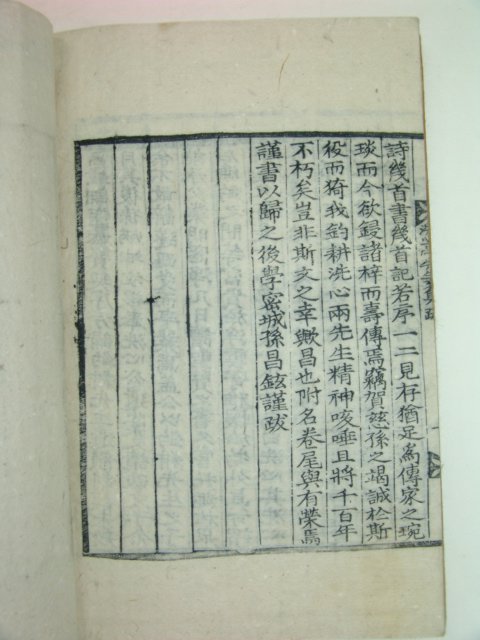 詩幾首書幾首記若序一二見存猶足爲傳家之琬
琰而今欲鋟諸梓而壽傳焉竊賀慈孫之竭誠於斯
役而猗我釣耕洗心兩先生精神咳唾且將千百年
不朽矣豈非斯文之幸歟昌也附名卷尾與有榮焉
謹書以歸之後學密城孫昌鉉謹跋